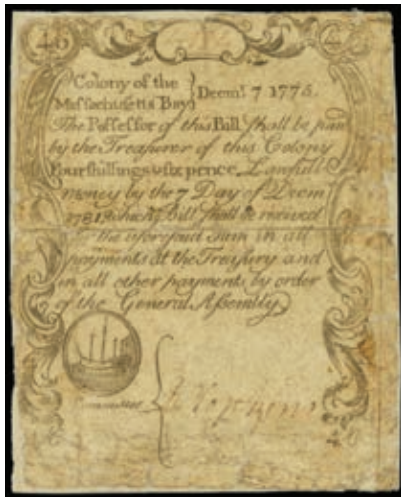 4s6 4
Colony of the
Massachusetts Bay } Decemr. 7 1775.
The Possessor of this Bill shall be paid
by the Treasurer of this Colony
Four shillings & six pence, Lawfull
money by the 7 Day of Decem
1781 which Bill shall be received
for the aforesaid Sum in all
payments at the Treasury and
in all other payments by order
of the General Assembly.
Committee